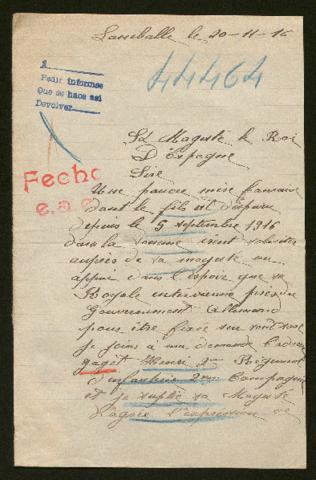 Lamballe le 20-11-16
44464
Pedir informes
Que se hace asi
Devolver
Sa Majesté le Roi
D'Espagne
Fecho
Sire
e.a.c.
Une pauvre mère française
dont le fils est disparu
depuis le 5 septembre 1916
dans la Somme vient solliciter
auprès de sa majesté un
appui dans l'espoir que sa
Royale intervienne près du
Gouvernement Allemand
pour être fixée sur son
je joins à ma demande
gagét Henri 2me Régiment
d'infanterie 2me Compagnie
et je suplie sa Majesté
l'expression de